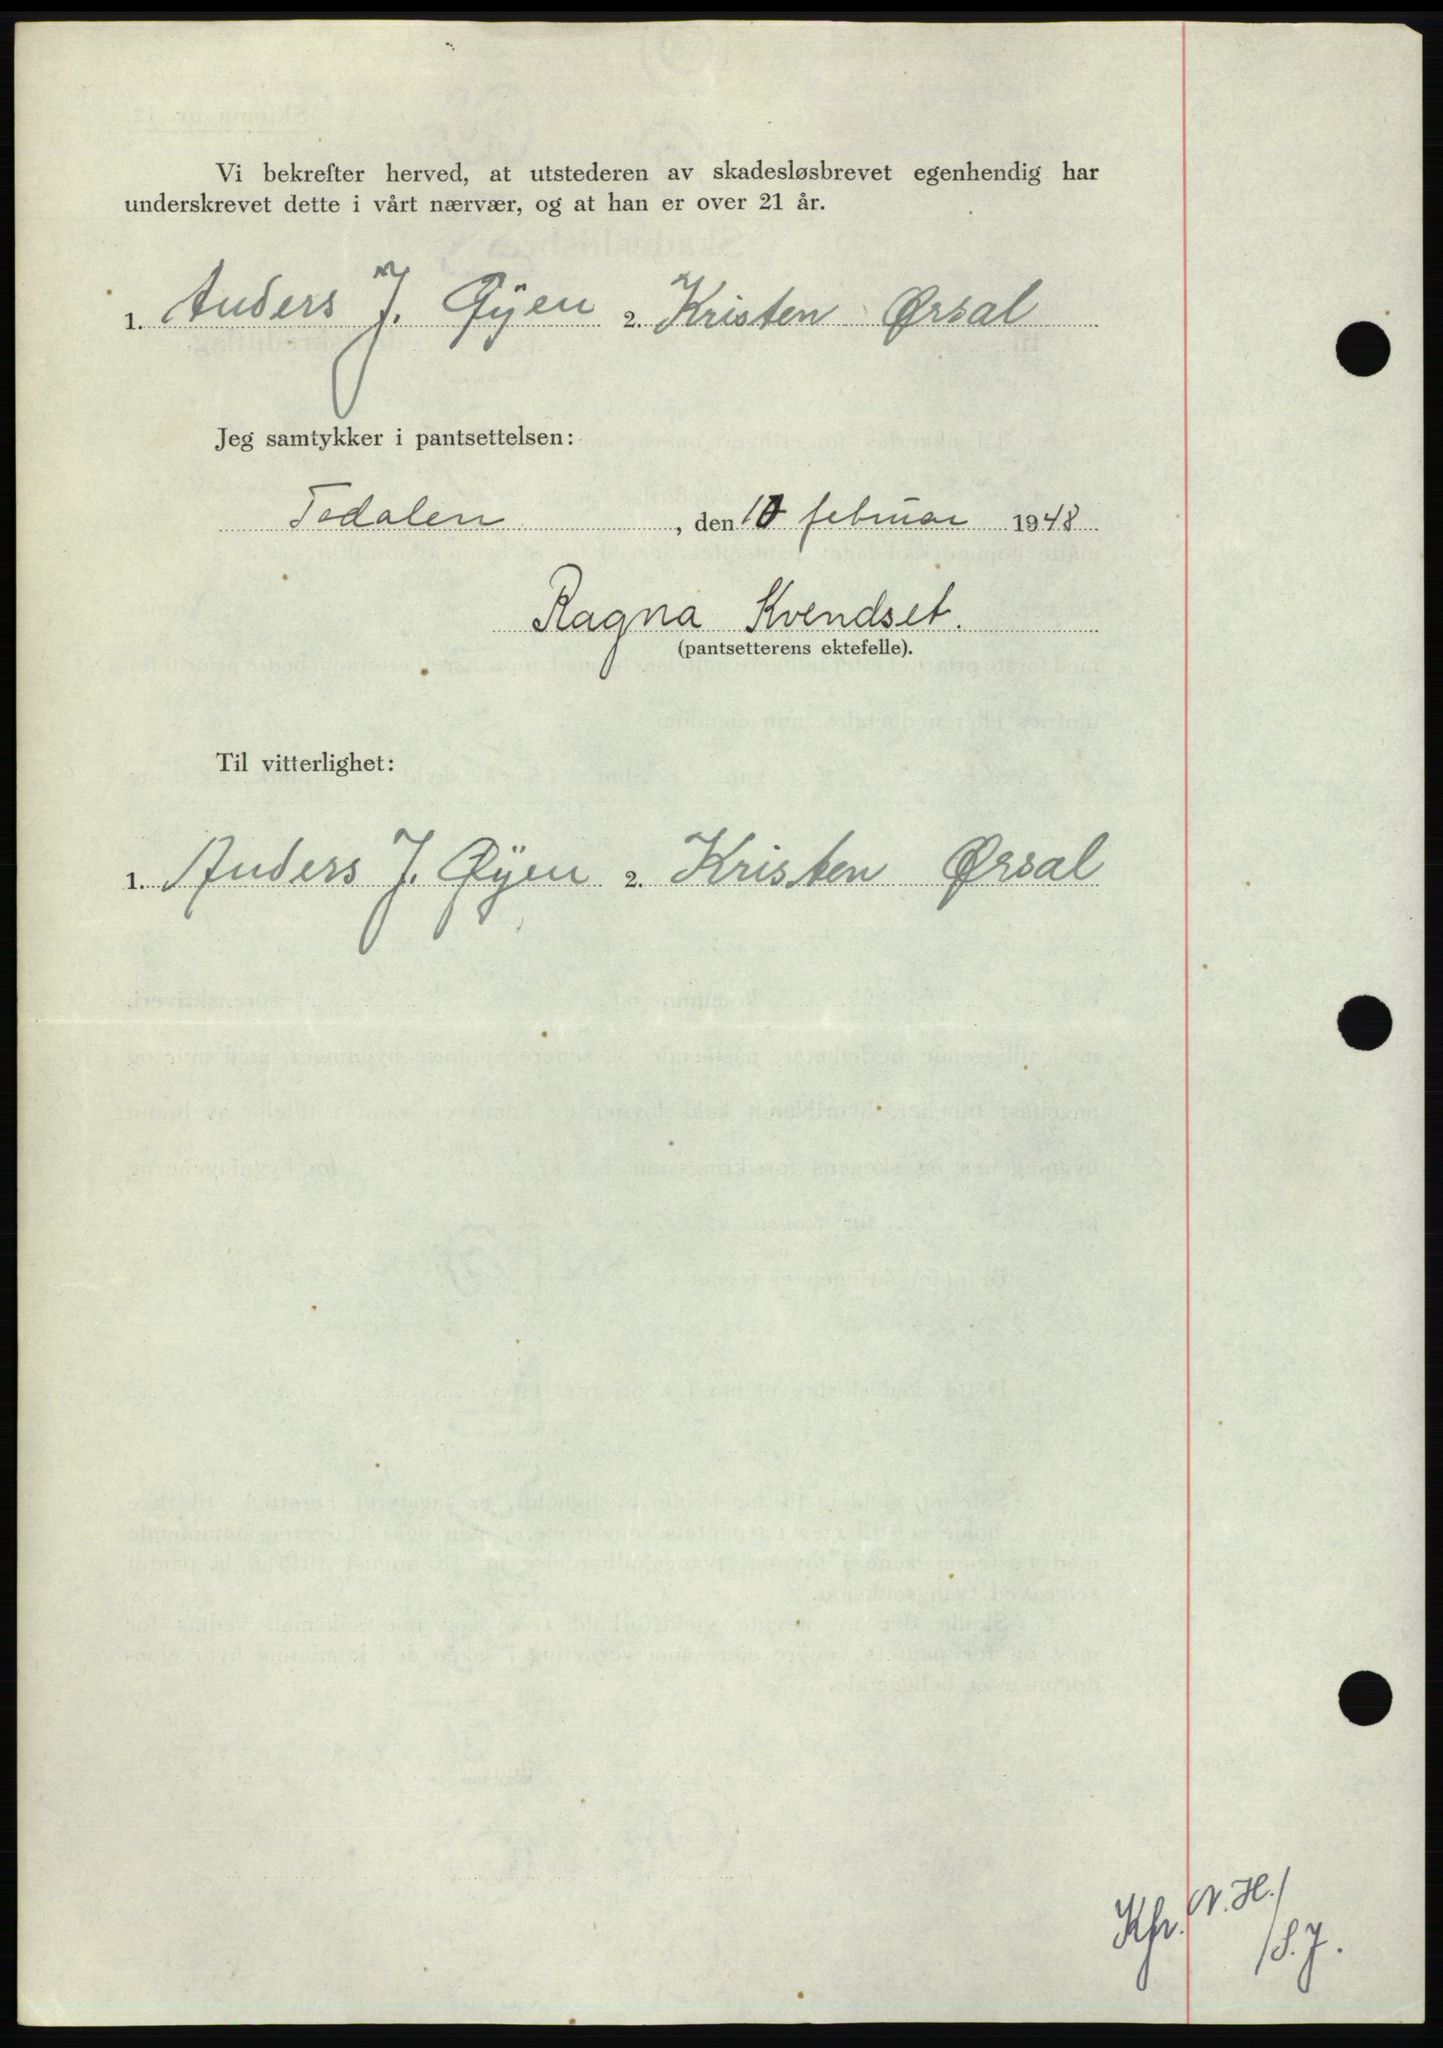 Vi bekrefter herved, at utstederen av skadesløsbrevet egenhendig har
underskrevet dette i vårt nærvær, og at han er over 21 år.
1. Anders J. Øÿen 2. Kristen Ørsal
Jeg samtykker i pantsettelsen:
Todalen, den 10 februar 1948
Ragna Kvendset.
(pantsetterens ektefelle).
Til vitterlighet:
1. Anders J. Øÿen 2. Kristen Ørsal
Kfr. N. H./
/S. J.